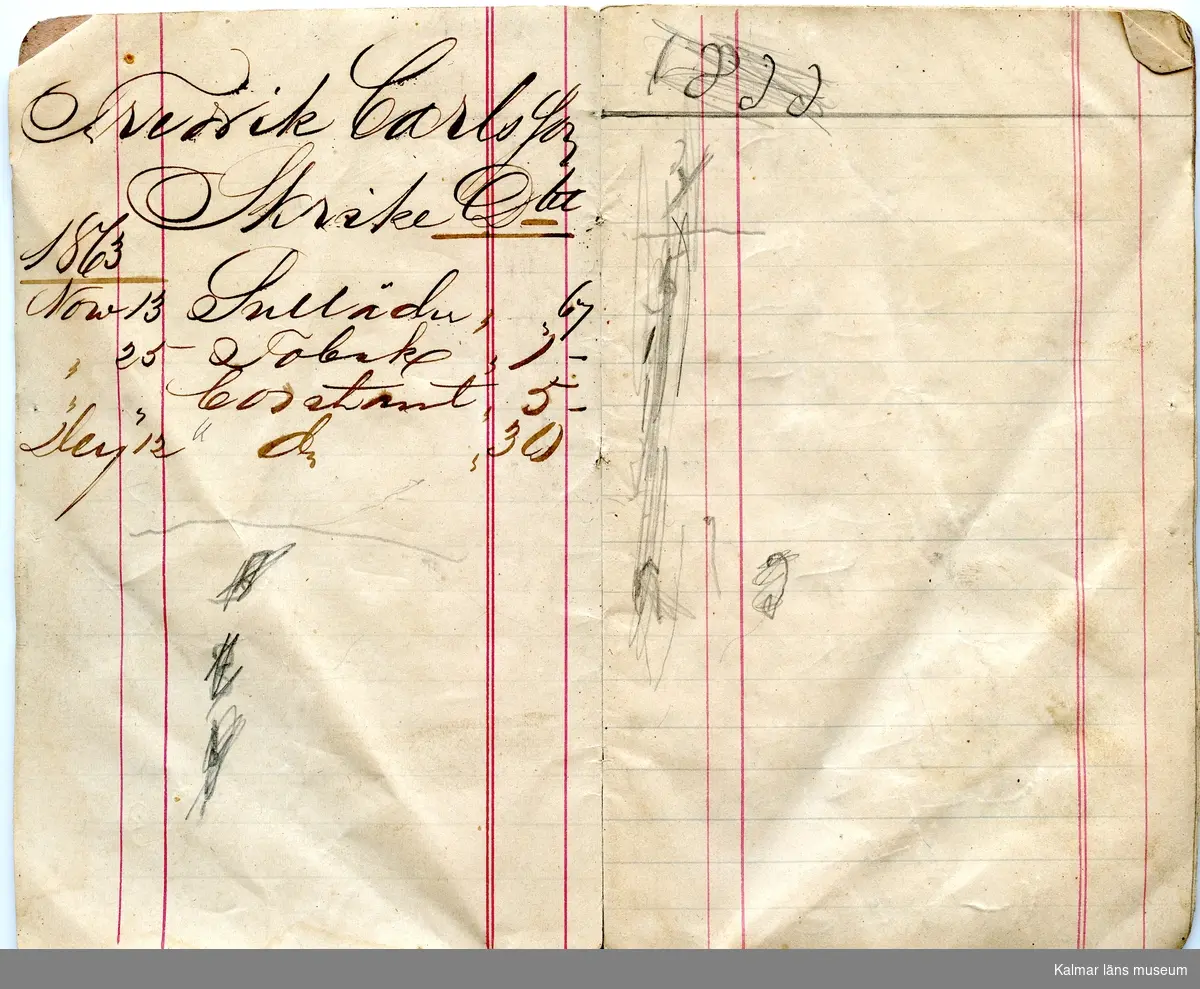 Fredrik Carlsson
Skrike Dbt
1863
Now 13 Sulläder " " 67
" 25 - Tobak " 1 -
" " Contant " 5 -
12 " do " 30
Kalmar läns museum